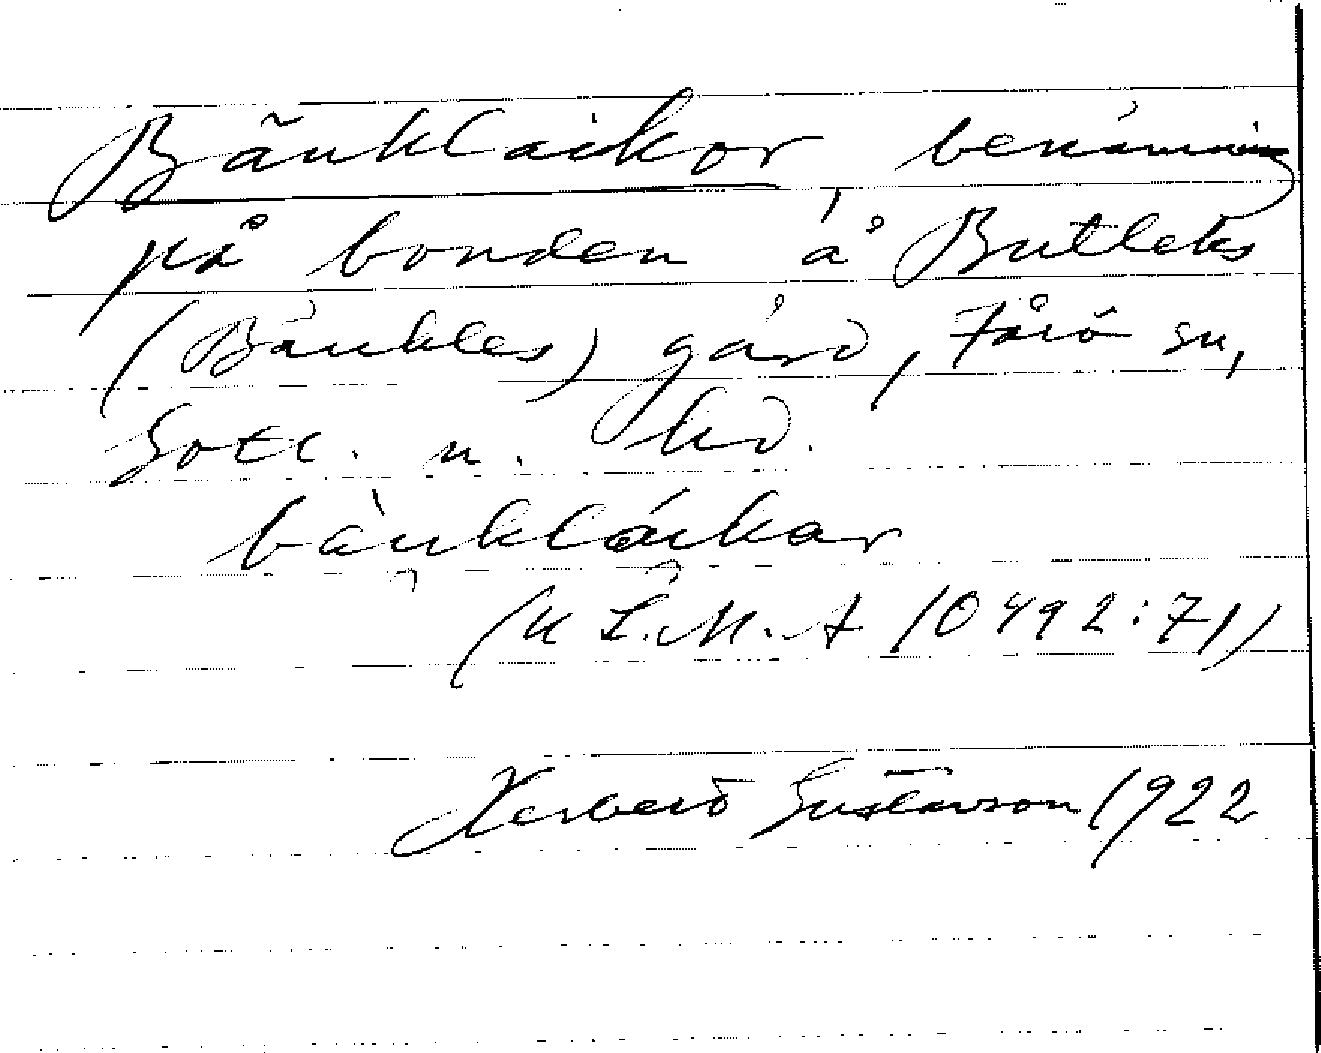 Bänklaikor, benämning
på bonden å Butleks
(Bänkles) gård, Fårö sn,
Gotl. n. hd.
bànkláikar
(ULMA 10492:71)
Herbert Gustavson 1922